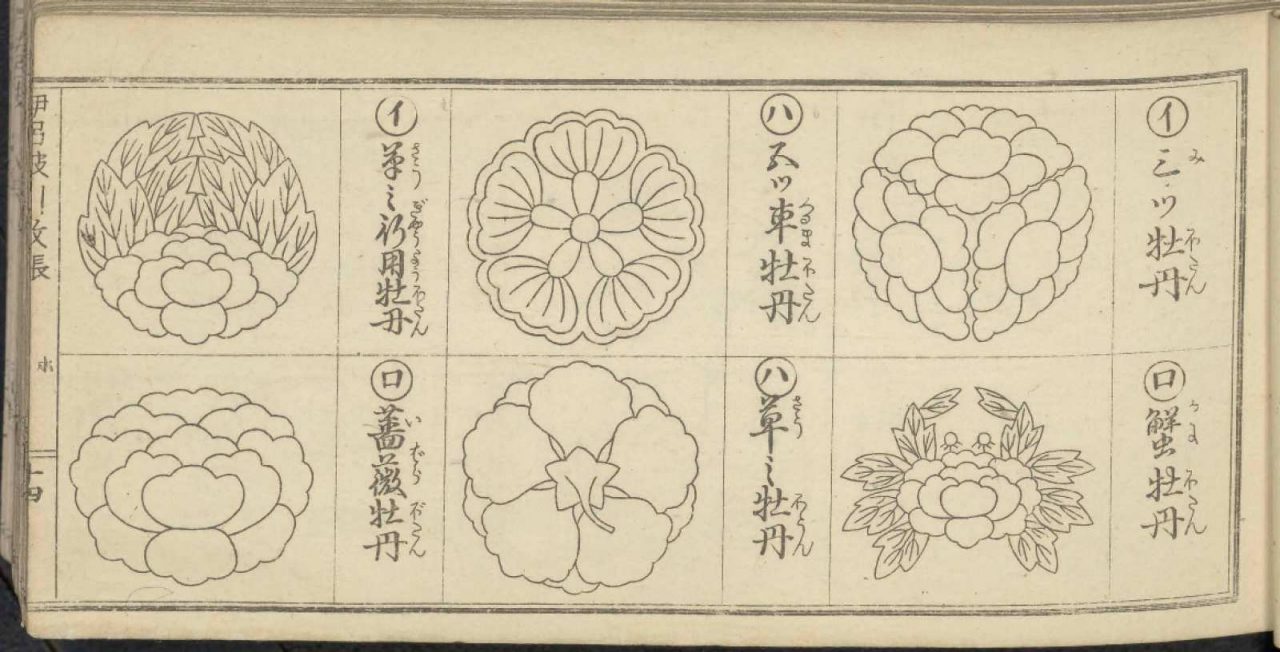 イ
三ツ牡丹
ロ
蟹牡丹
ハ
五ツ車牡丹
ハ
草之牡丹
イ
草之行用牡丹
ロ
薔薇牡丹
伊呂波引紋帳
ホ
十四